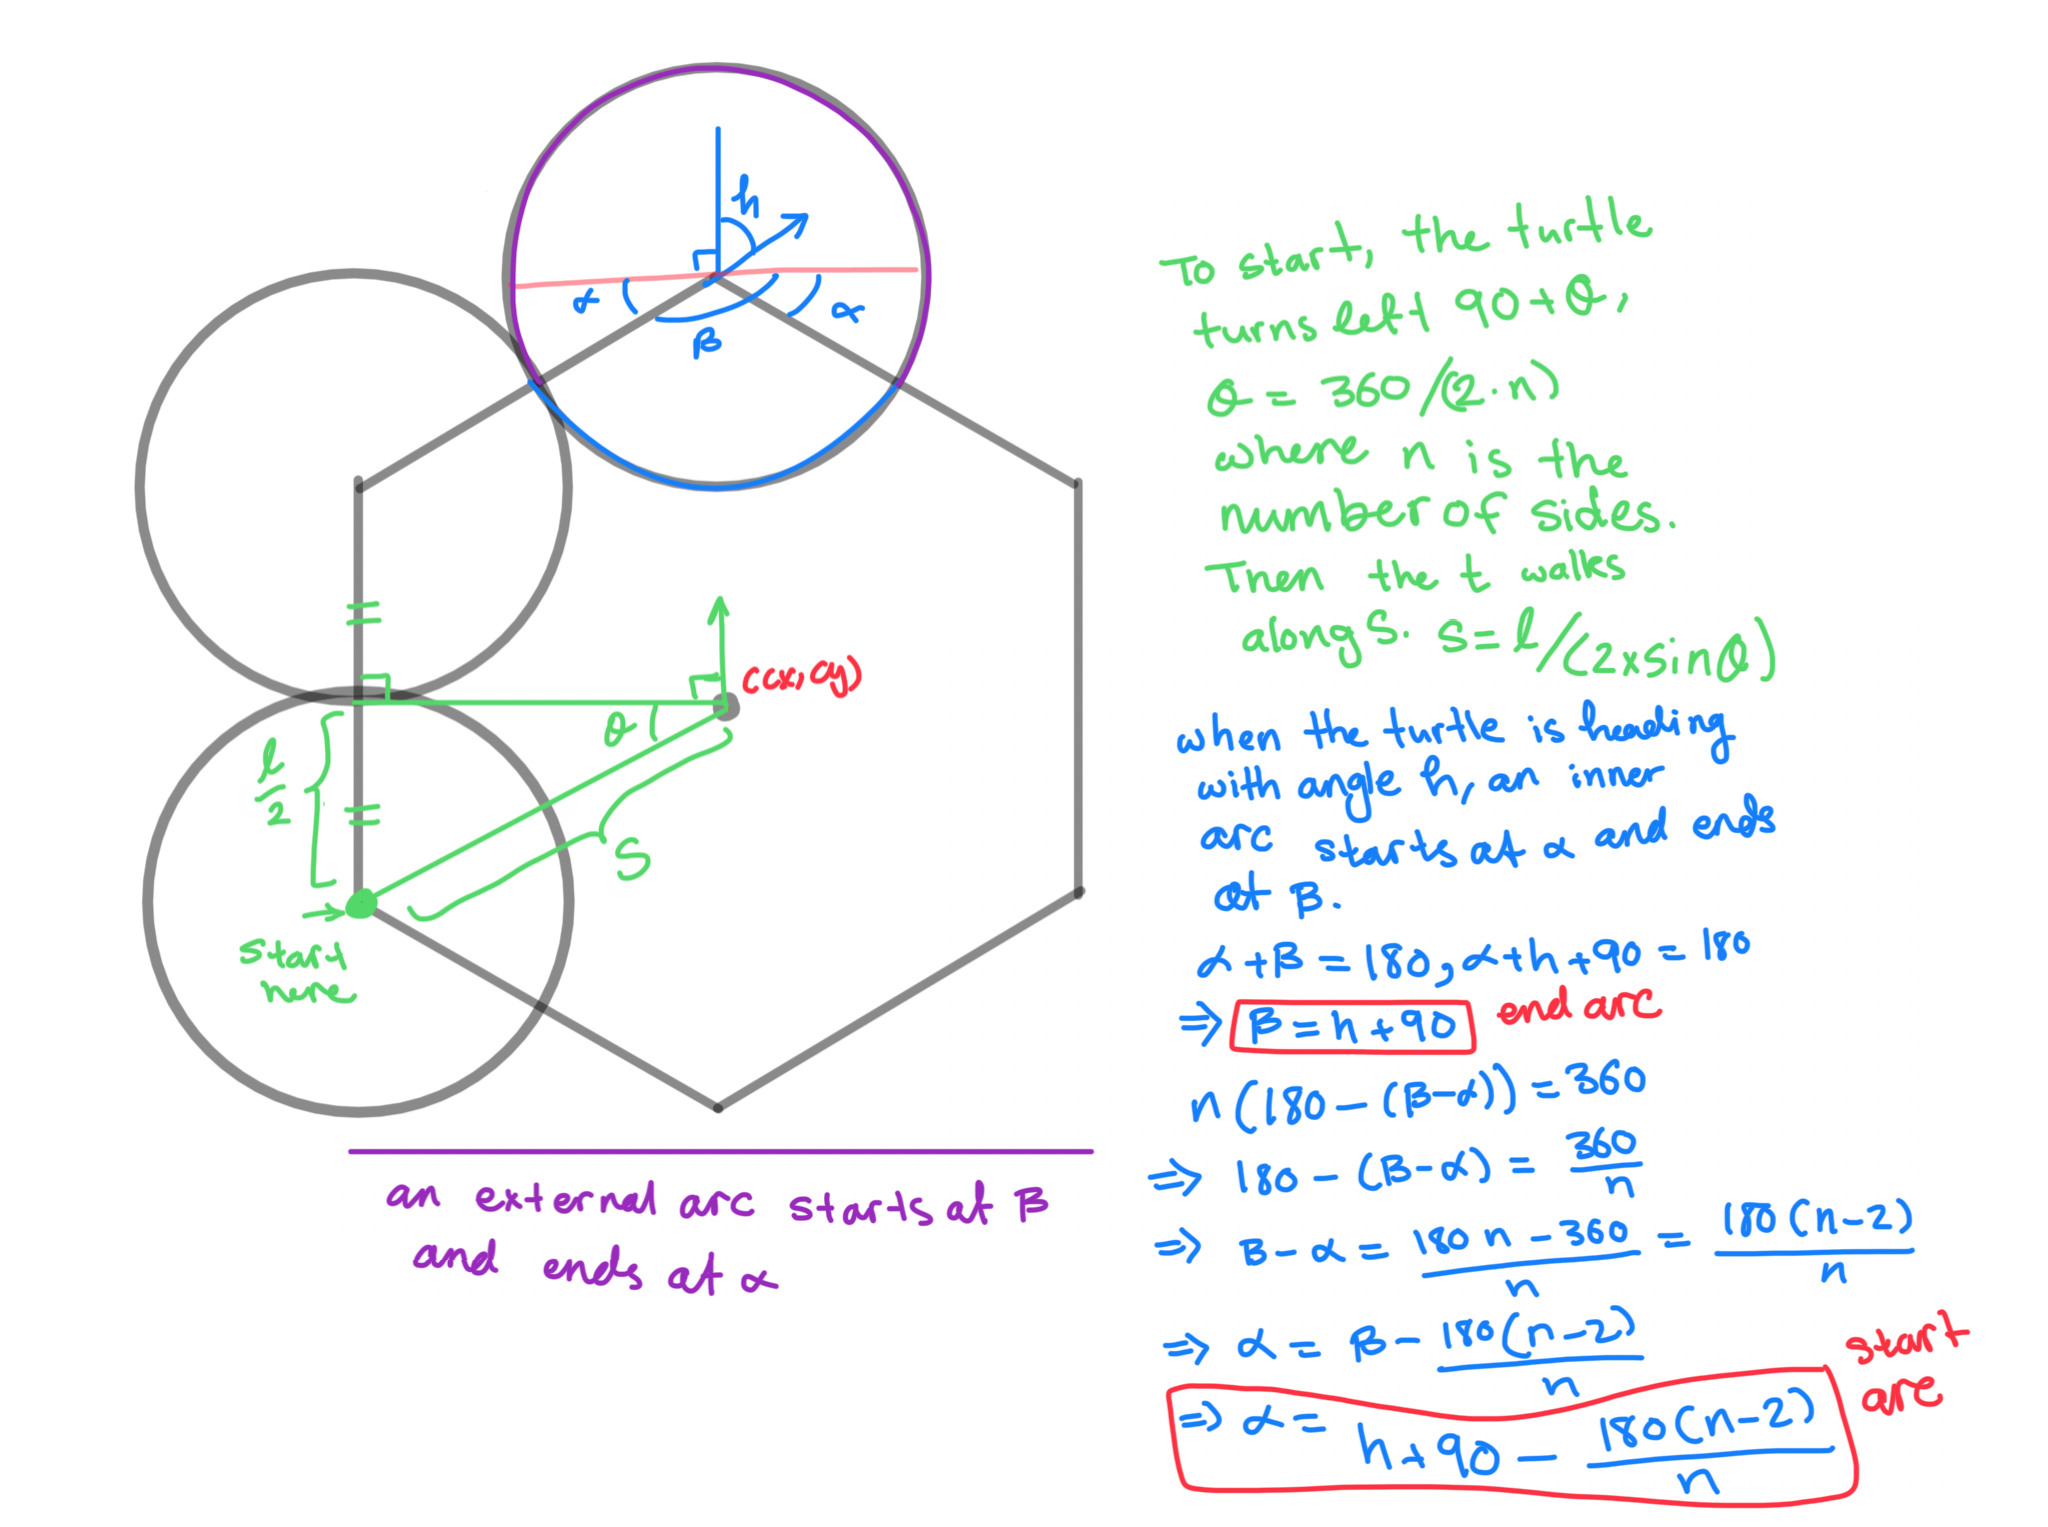 h
α
β
α
(cx, cy)
θ
l/2
S
start
here
an external arc starts at β
and ends at α
To start, the turtle
turns left 90+θ,
θ = 360/(2·n)
where n is the
number of sides.
Then the t walks
along S. S = l/(2×sinθ)
when the turtle is heading
with angle h, an inner
arc starts at α and ends
at β.
α+β = 180, α+h+90 = 180
⇒ β = h+90 end arc
n(180-(β-α)) = 360
⇒ 180-(β-α) = 360/n
⇒ β-α = 180n-360/n = 180(n-2)/n
⇒ α = β - 180(n-2)/n
start
arc
⇒ α = h+90 - 180(n-2)/n